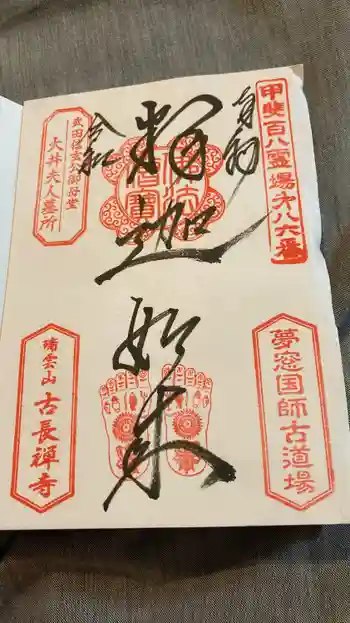 甲斐百八霊場㐧八六番
夢窓国師古道場
佛法僧寶
釋迦如来
令和
武田信玄公御母堂
大井夫人墓所
瑞雲山 古長禅寺